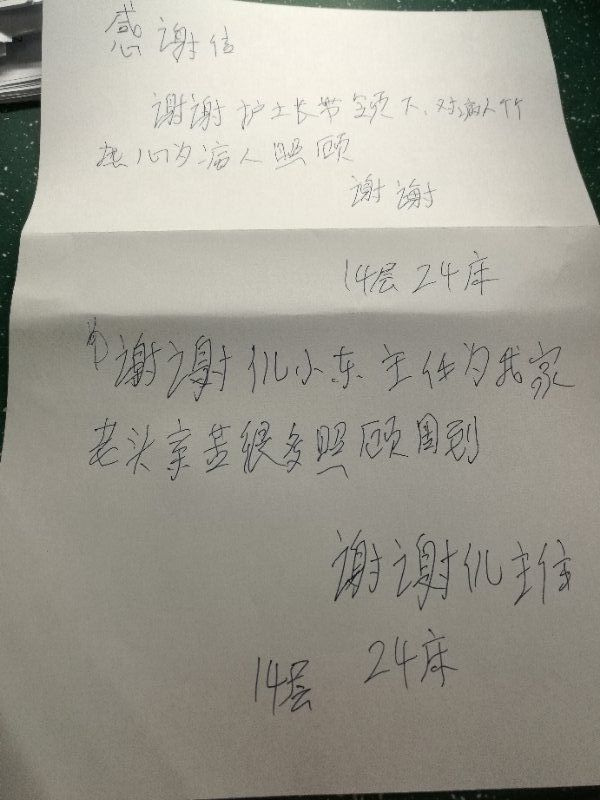 感谢信
谢谢护士长带领下、对病人
热心为病人照顾
谢谢
14层 24床
谢谢仉小东主任为我家
老头亲苦很多照顾周到
谢谢仉主任
14层 24床